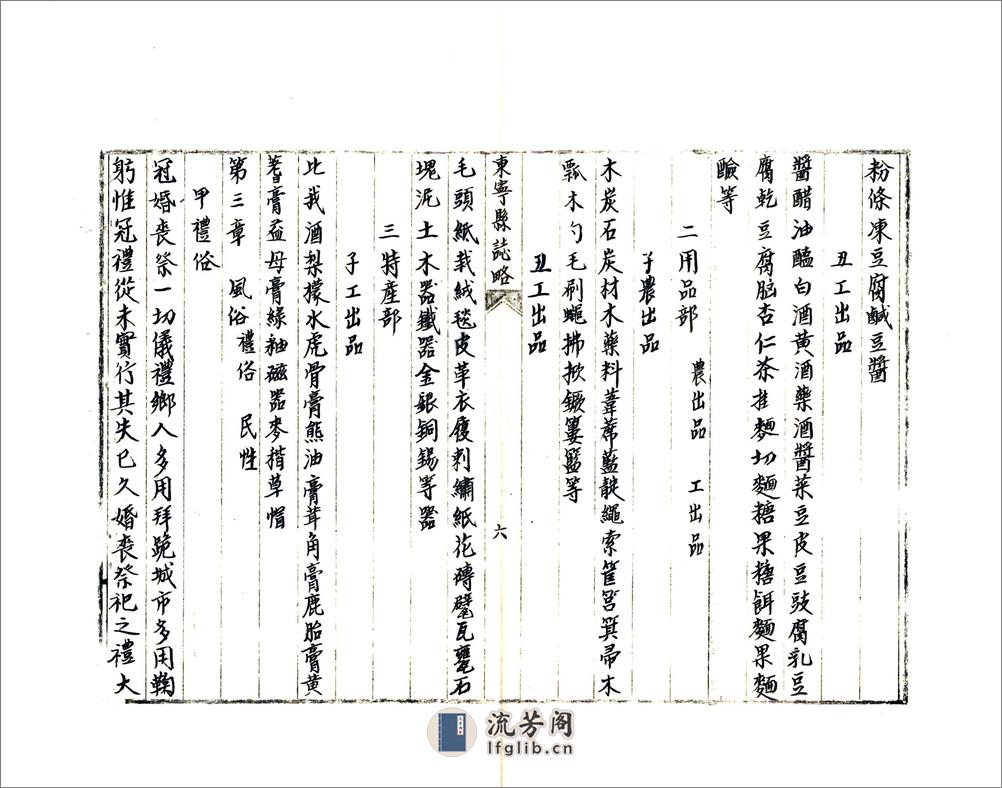 粉條凍豆腐鹹豆醬
丑工出品
醬醋油醯白酒黄酒藥酒醬菜豆皮豆豉腐乳豆
腐乾豆腐脑杏仁茶挂麵切麵糖果糖餌麵果麵
醶等
二用品部 農出品 工出品
子農出品
木炭石炭材木藥料葦蓆藍靛繩索筐筥箕帚木
瓢木勺毛刷蠅拂掀鐝簍籃等
丑工出品
東寧縣誌略
六
毛頭紙栽絨毯皮革衣履刺繡紙花磚甓瓦甕石
塊泥土木器鐵器金銀銅錫等器
三特產部
子工出品
比我酒梨檬水虎骨膏熊油膏茸角膏鹿胎膏黄
蓍膏益母膏綠釉磁器麥楷草帽
第三章 風俗禮俗 民性
甲禮俗
冠婚喪祭一切儀禮鄉人多用拜跪城市多用鞠
躬惟冠禮從未實行其失已久婚喪祭祀之禮大
流芳阁
lfglib.cn